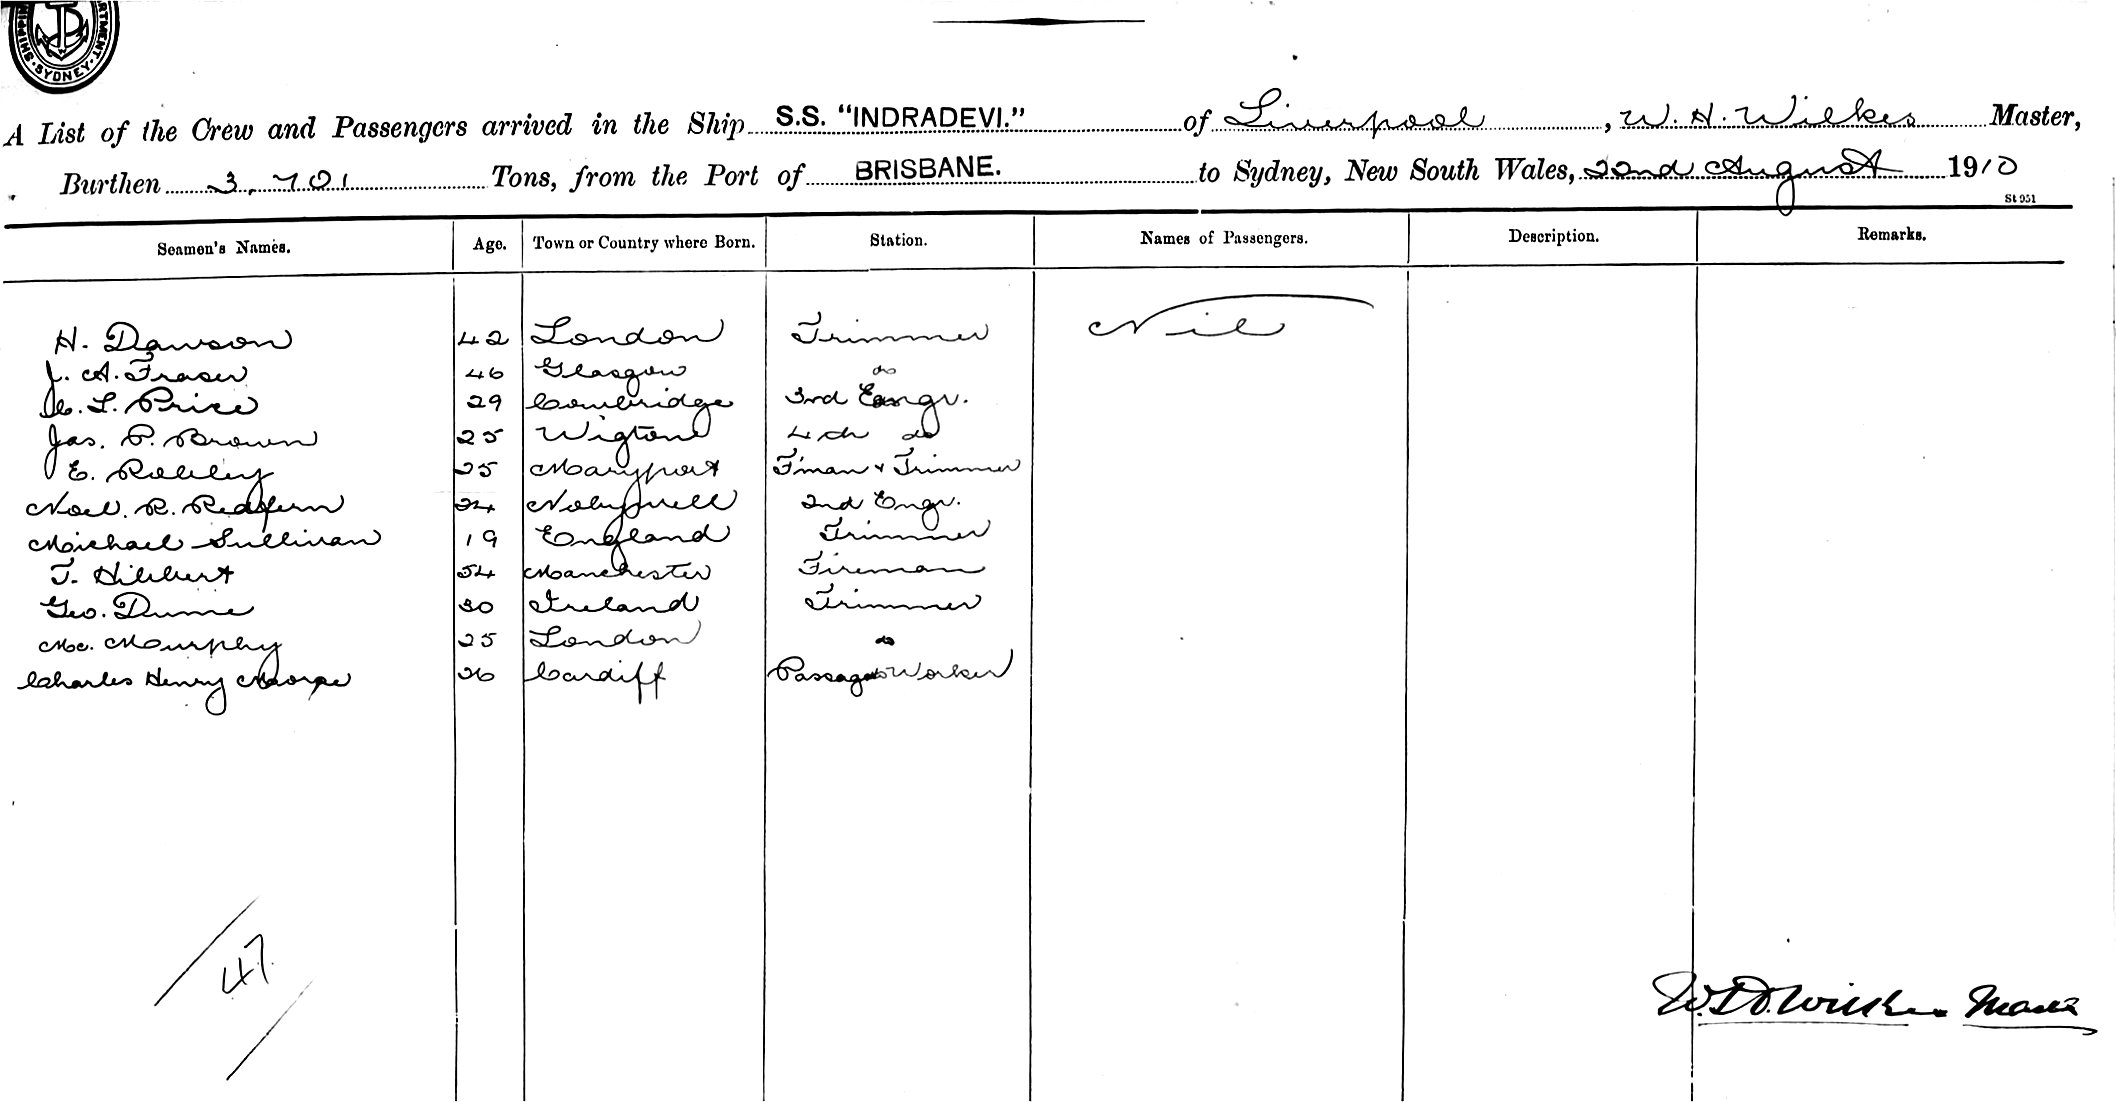 SHIPPING DEPARTMENT. SYDNEY.
A List of the Crew and Passengers arrived in the Ship S.S. "INDRADEVI." of Liverpool, W. H. Wilkes Master,
Burthen 3,701 Tons, from the Port of BRISBANE. to Sydney, New South Wales, 22nd August 1910
St 951
Seamen's Names. Age. Town or Country where Born. Station. Names of Passengers. Description. Remarks.
H. Dawson 42 London Trimmer Nil
J. A. Fraser 46 Glasgow do
C. L. Price 29 Cowbridge 3rd Engr.
Jas. P. Brown 25 Wigton 4th do
E. Robley 25 Maryport F'man & Trimmer
Noel. R. Redfern 24 2nd Engr.
Michael Sullivan 19 England Trimmer
T. Hibbert 54 Manchester Fireman
Geo. Dunne 30 Ireland Trimmer
Mc. Murphy 25 London do
Charles Henry 26 Cardiff Passage Worker
47
W. H. Wilkes Master